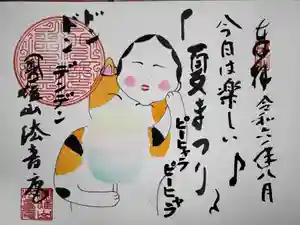 奉拝 令和六年八月
今日は楽しい♪
「夏まつり〜
ピーヒャラ
ピーヒャラ
ドン
ドン
デンデン
山法音庵